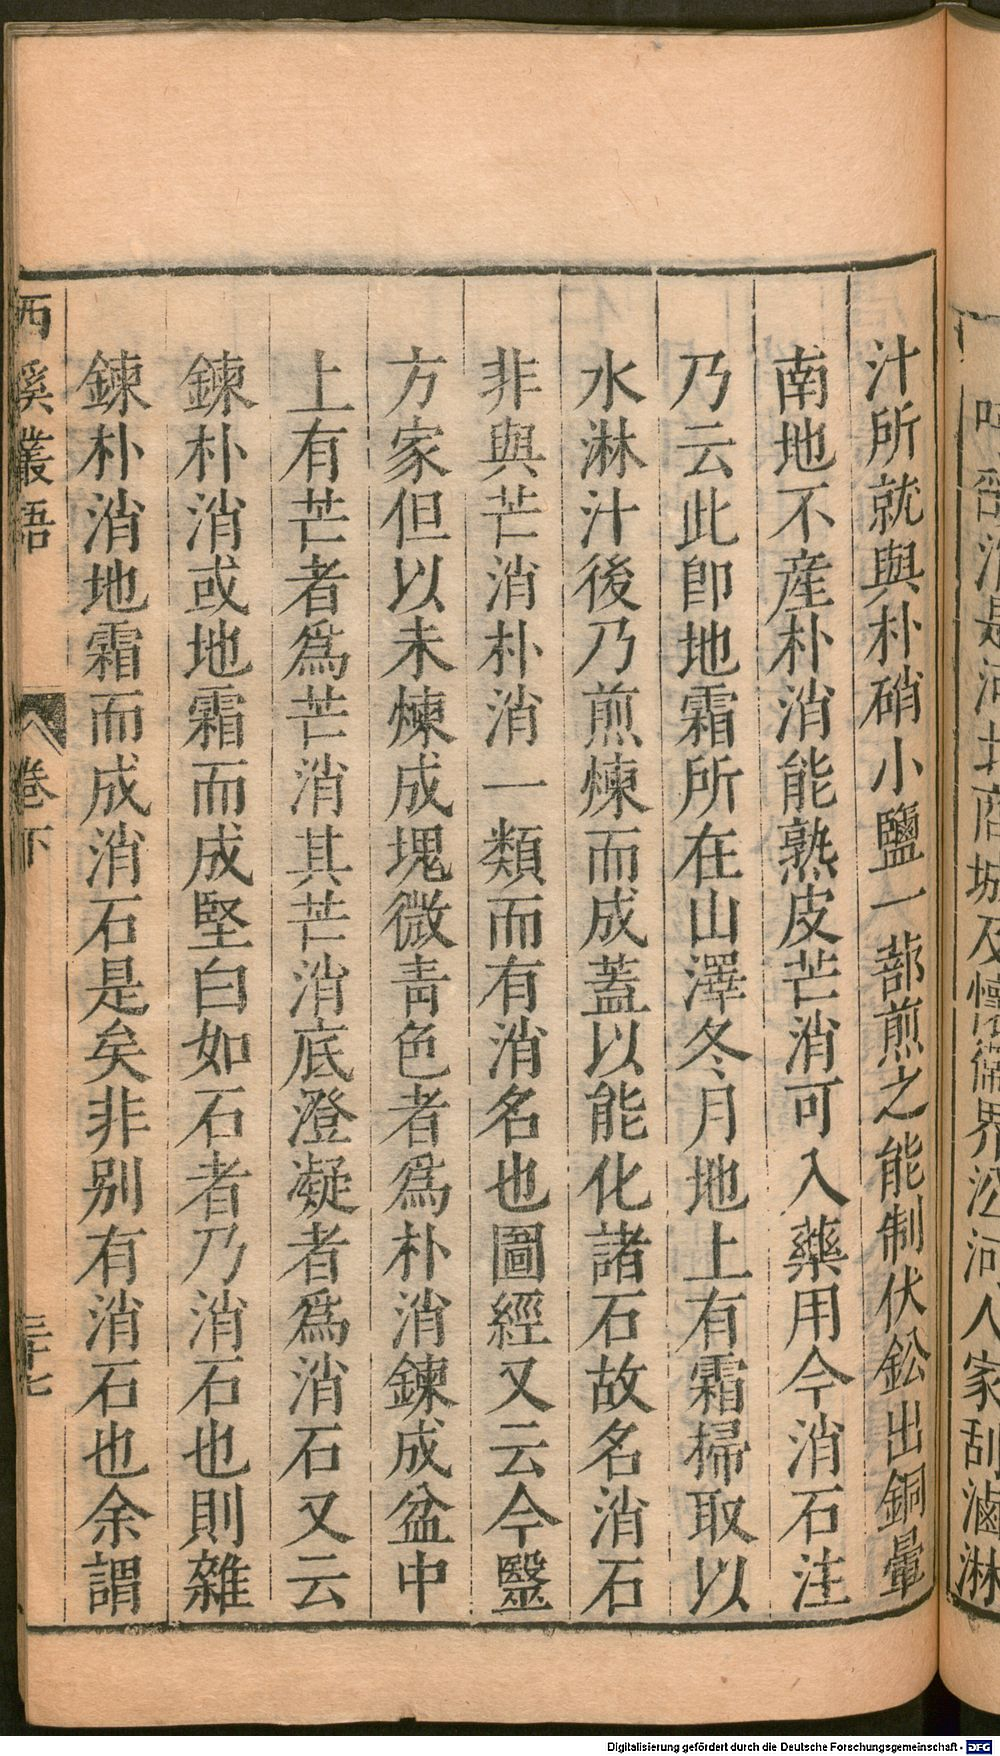 汁所就與朴硝小鹽一蔀煎之能制伏鈆出銅暈
南地不産朴消能熟皮芒消可入藥用今消石注
乃云此卽地霜所在山澤冬月地上有霜掃取以
水淋汁後乃煎煉而成蓋以能化諸石故名消石
非與芒消朴消一類而有消名也圖經又云今醫
方家但以未煉成塊微靑色者爲朴消鍊成盆中
上有芒者爲芒消其芒消底澄凝者爲消石又云
鍊朴消或地霜而成堅白如石者乃消石也則雜
鍊朴消地霜而成消石是矣非別有消石也余謂
西溪叢語 卷下 三十七
Digitalisierung gefördert durch die Deutsche Forschungsgemeinschaft - DFG